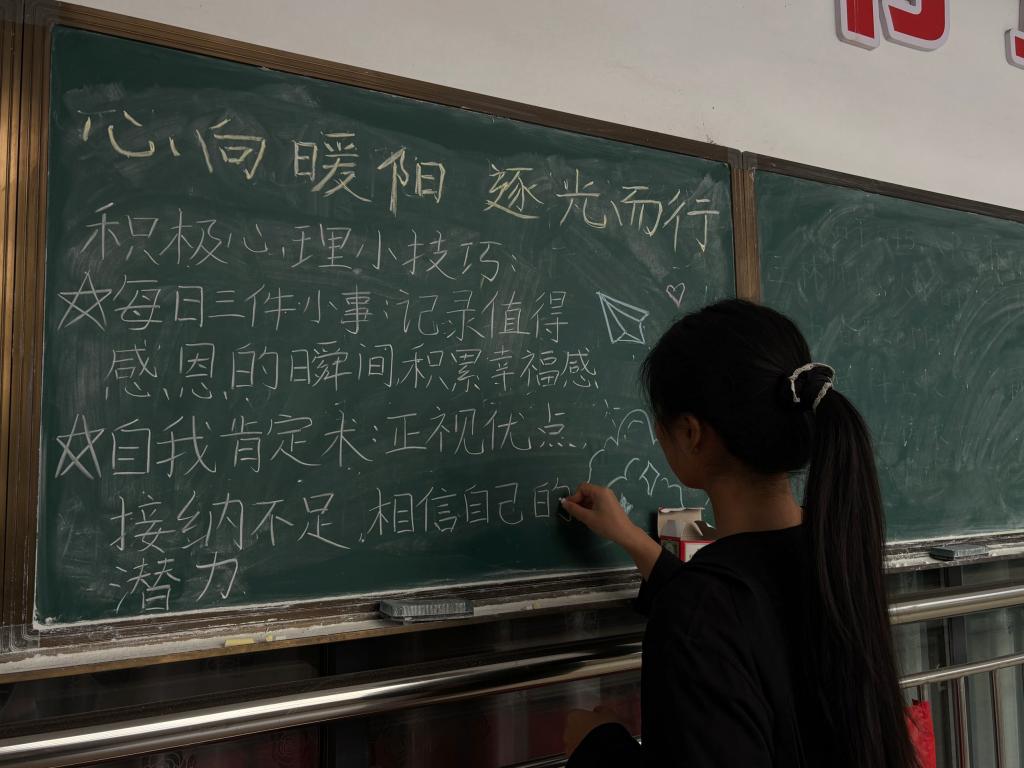 心向暖阳 逐光而行
积极心理小技巧:
☆每日三件小事:记录值得
感恩的瞬间,积累幸福感.
☆自我肯定术:正视优点,
接纳不足,相信自己的
潜力